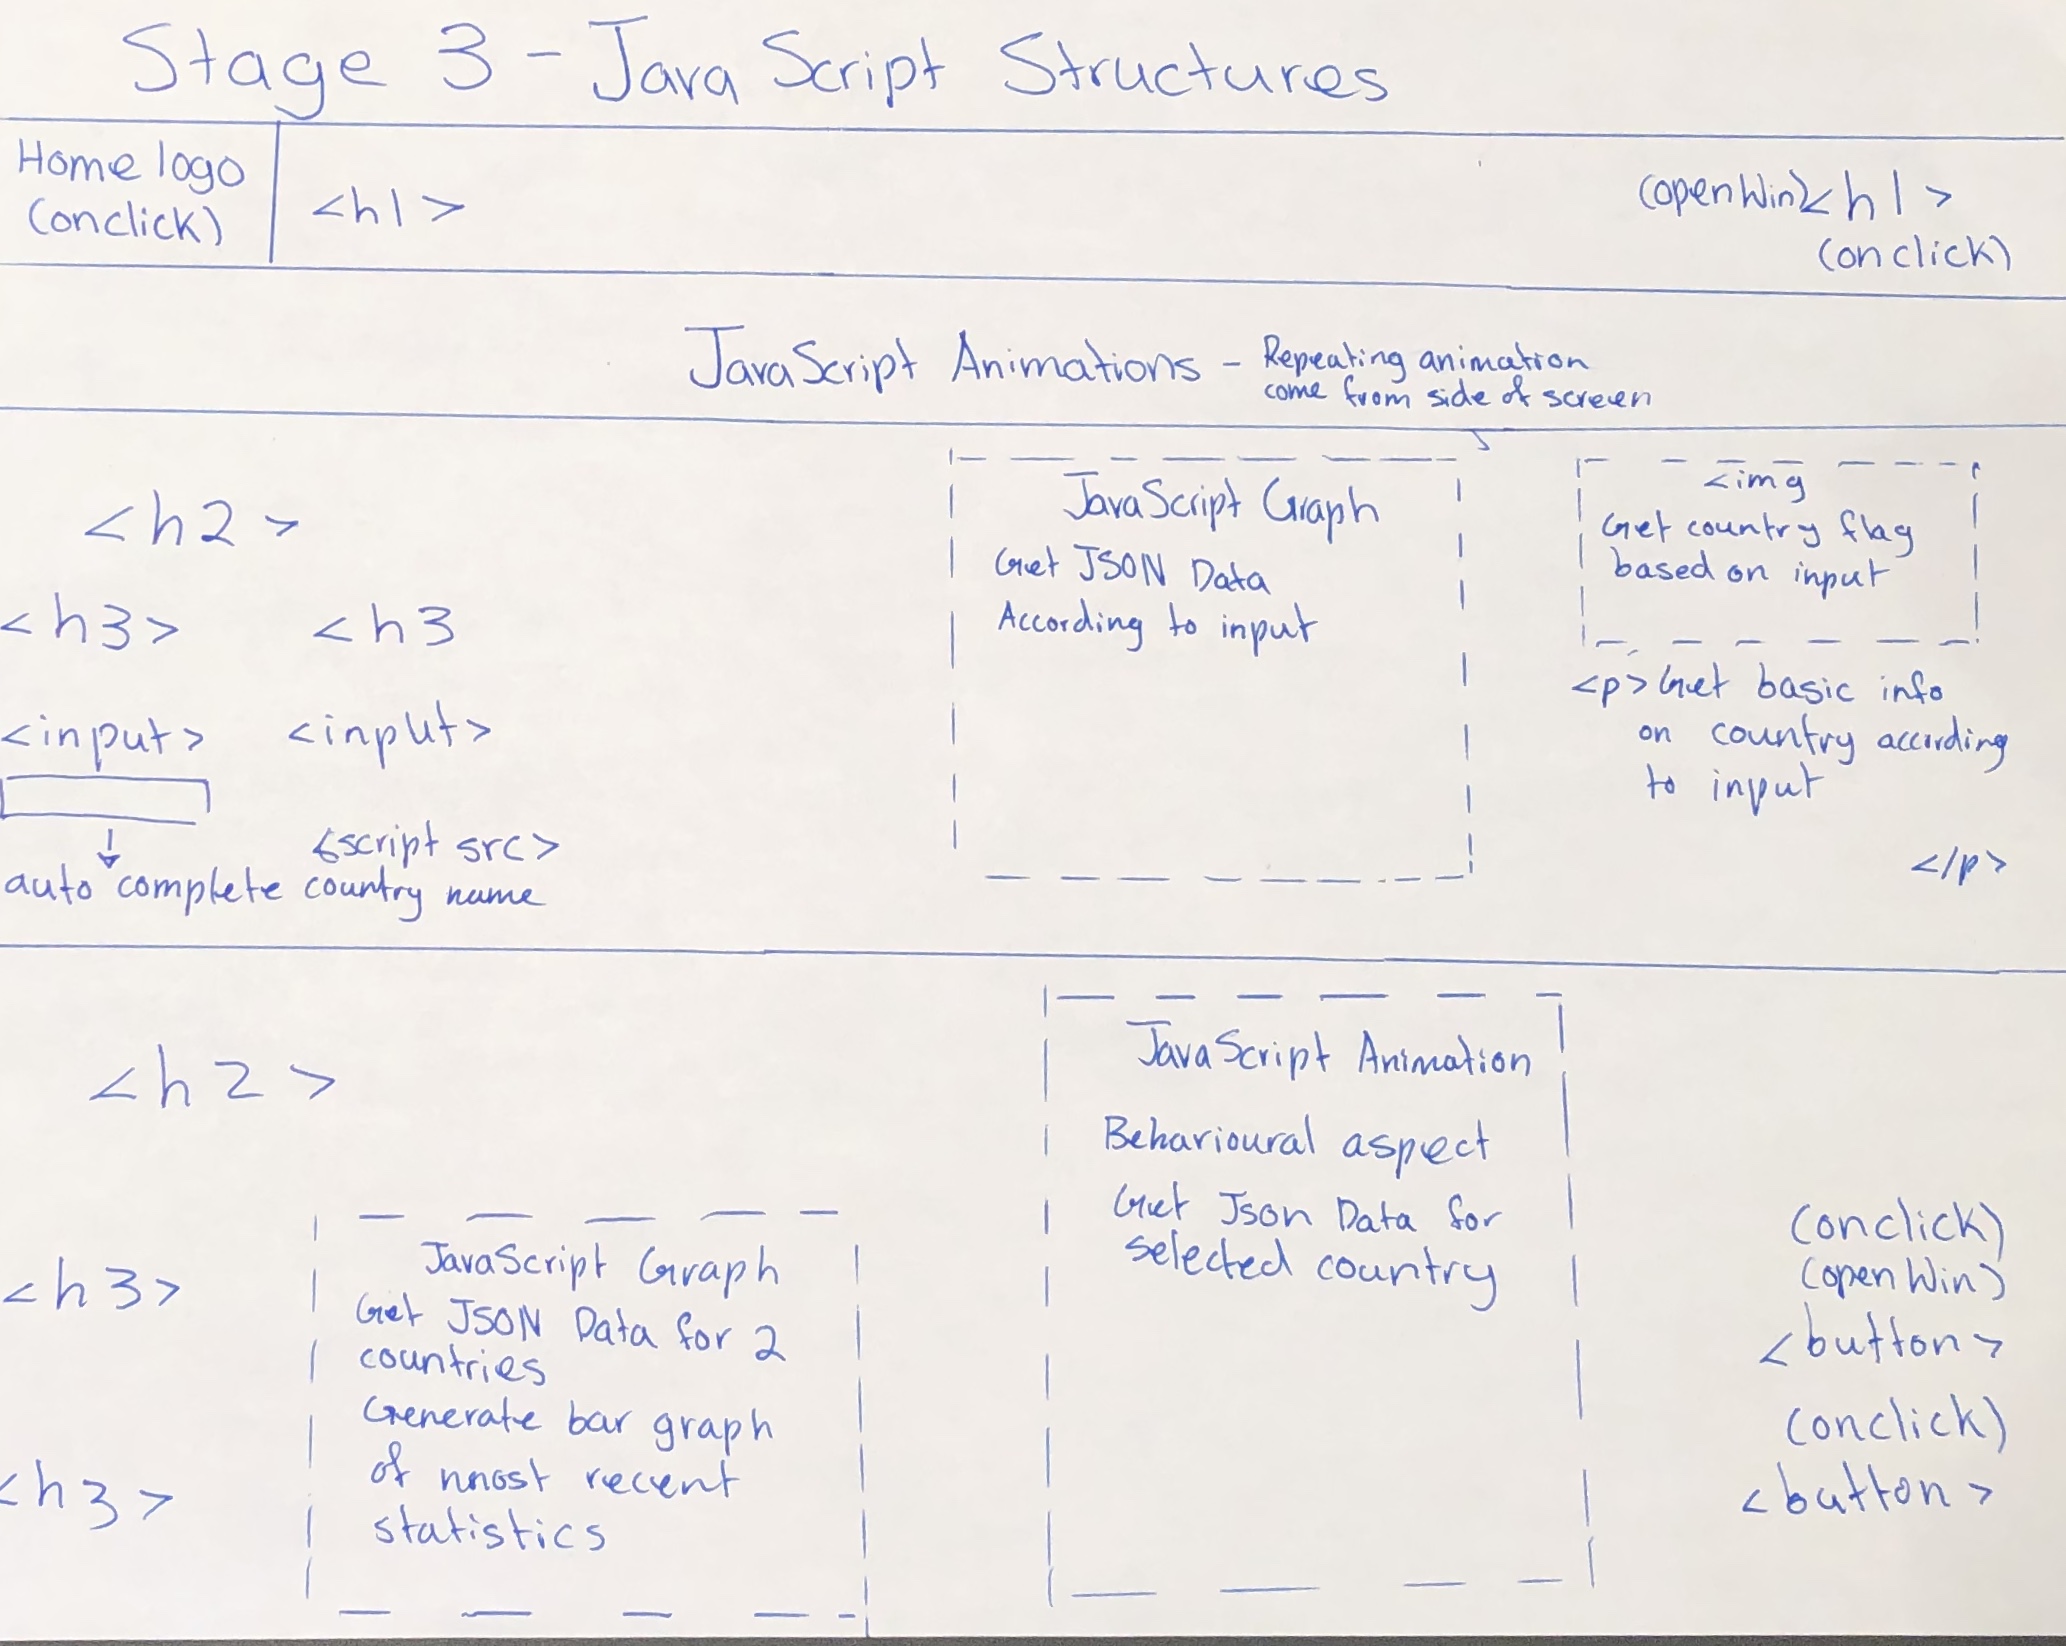 Stage 3 - JavaScript Structures
Home logo
(onclick)
<h1>
(openWin)<h1>
(onclick)
JavaScript Animations - Repeating animation
come from side of screen
<h2>
<h3> <h3
<input> <input>
<script src>
auto complete country name
JavaScript Graph
Get JSON Data
According to input
<img
Get country flag
based on input
<p> Get basic info
on country according
to input
</p>
<h2>
<h3>
<h3>
JavaScript Graph
Get JSON Data for 2
countries
Generate bar graph
of most recent
statistics
JavaScript Animation
Behavioural aspect
Get Json Data for
selected country
(onclick)
(openWin)
<button>
(onclick)
<button>